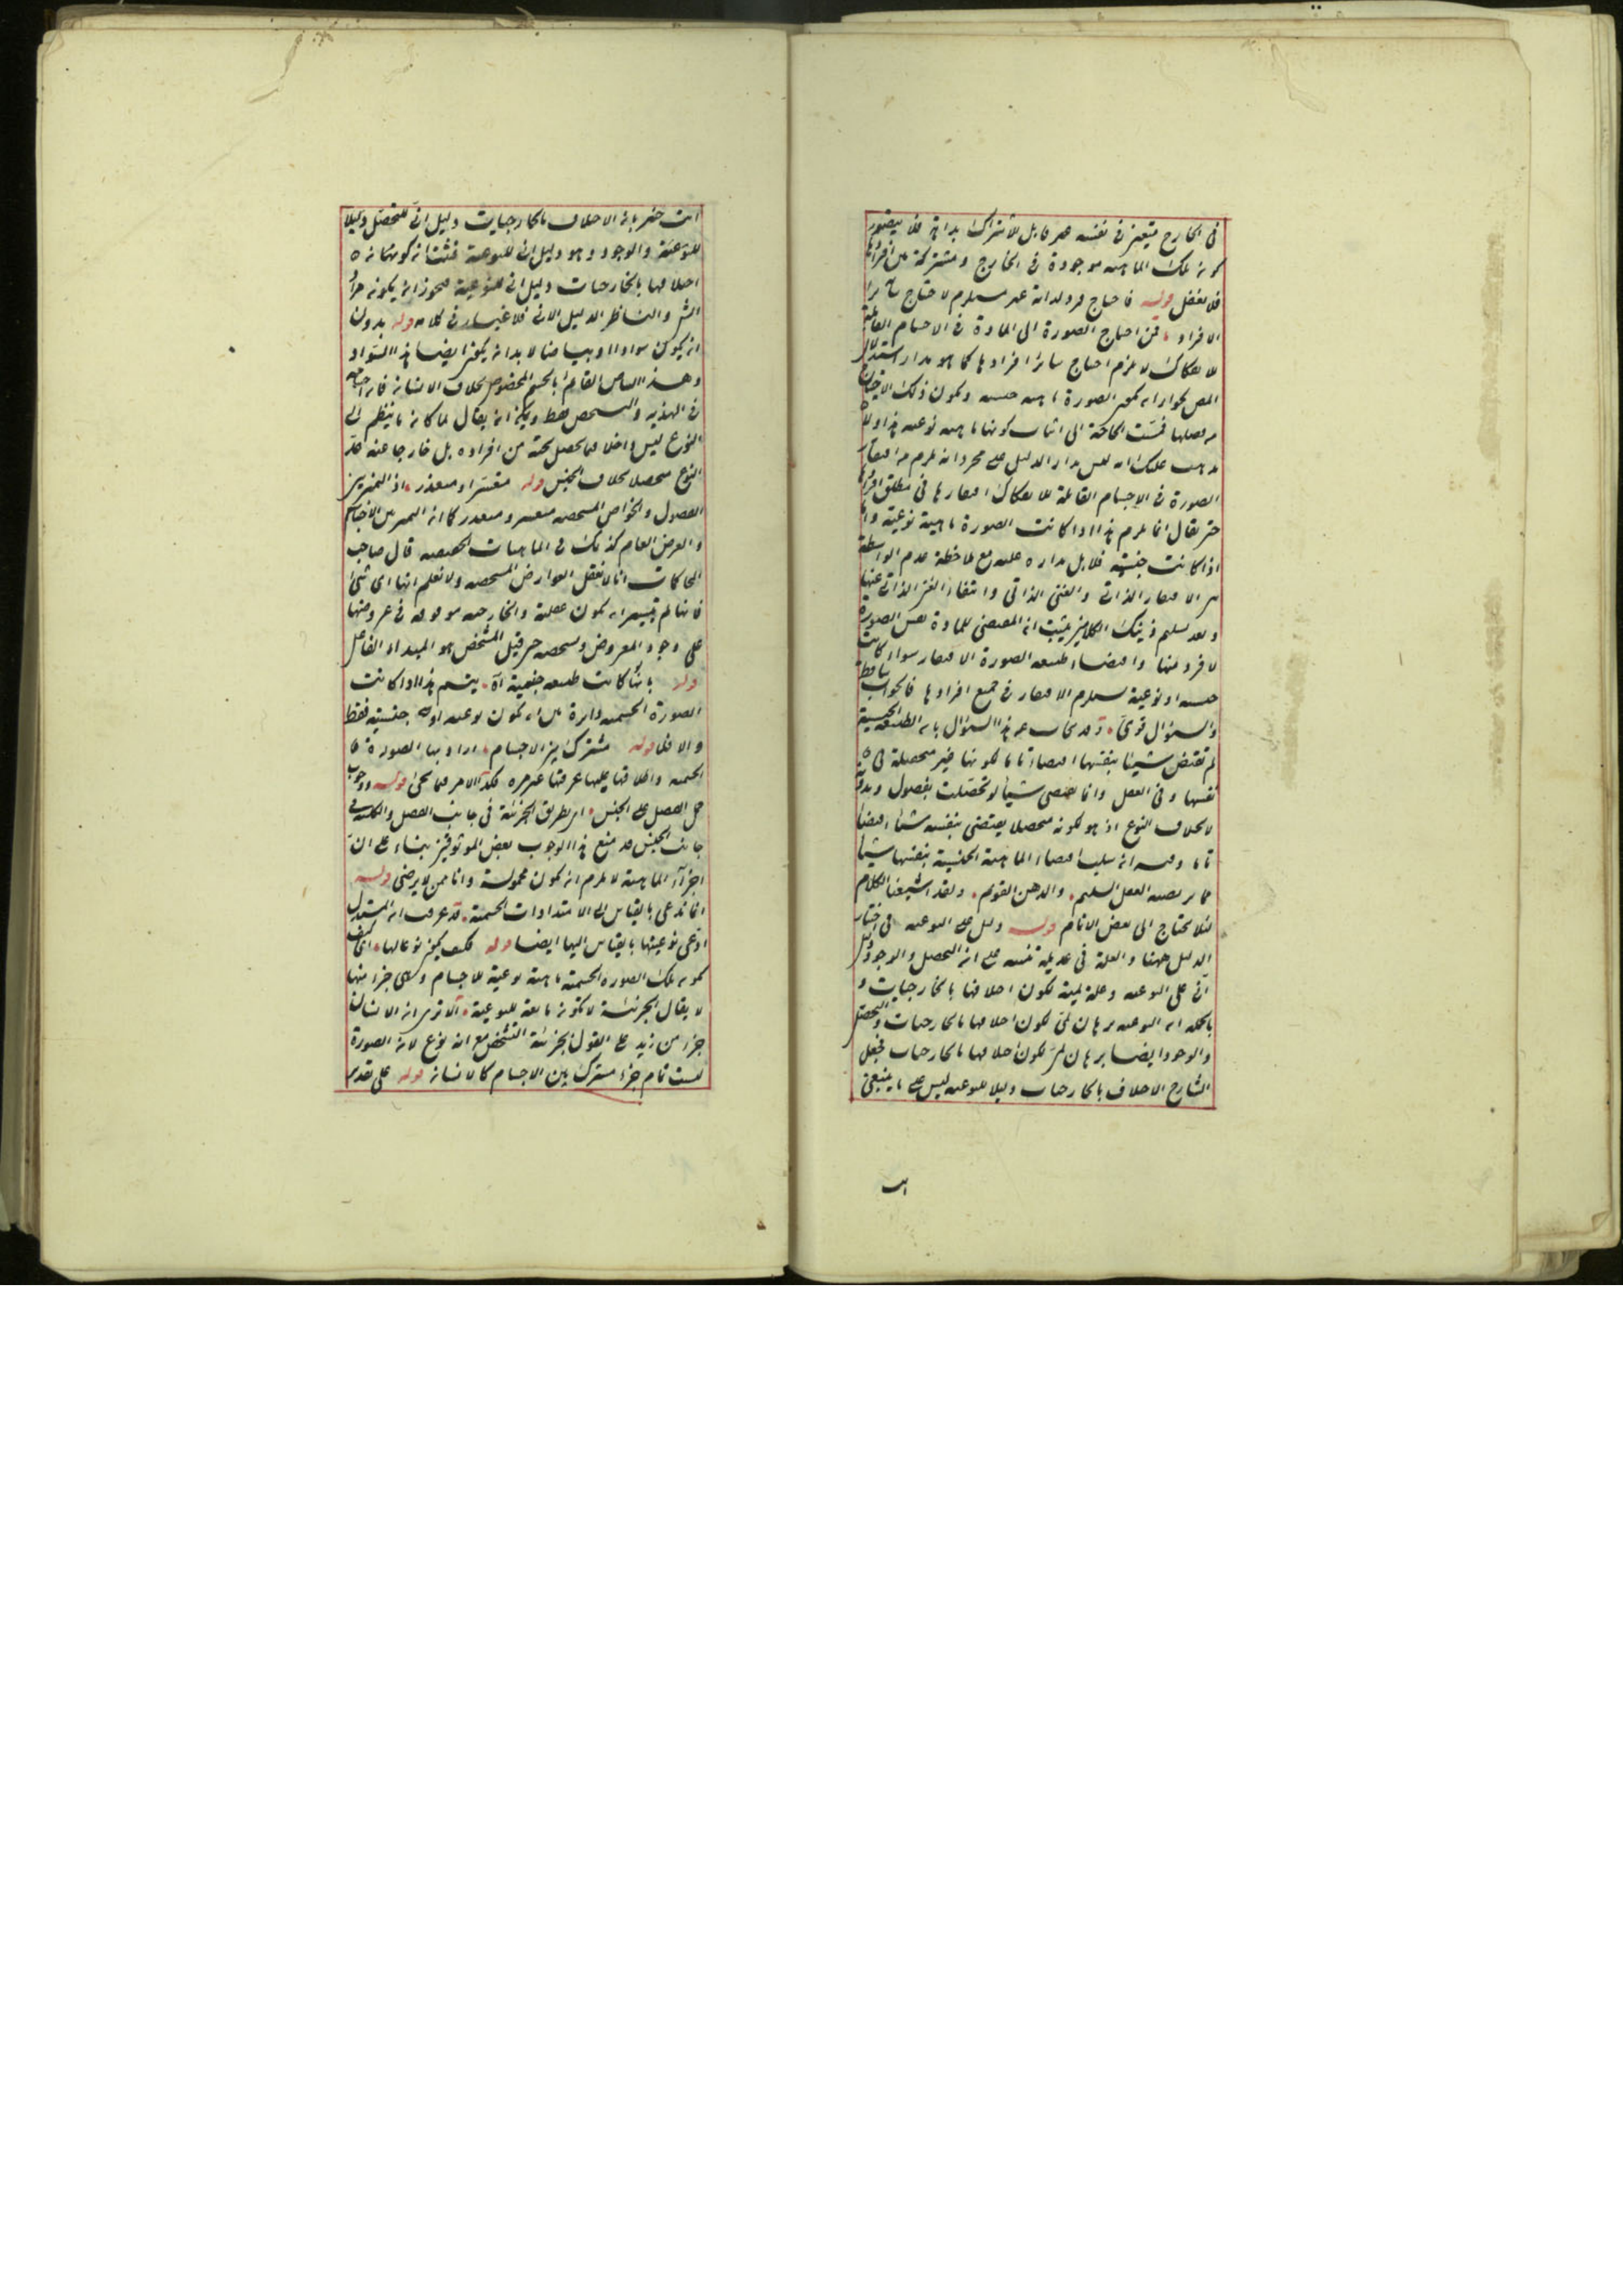 في الخارج متعين في نفسه غير قابل للاشتراك بداهة فلا يتصور
كون تلك الماهية موجودة في الخارج ومشتركة بين أفرادها
فلا تغفل قوله فاحتياج فرد لذاته غير مستلزم لاحتياج سائر
الافراد، فمن احتياج الصورة الى المادة في الاجسام القابلة
للانفكاك لا يلزم احتياج سائر افرادها كما هو مدار استدلال
المص لجواز ان تكون الصورة ماهية جنسية ويكون ذلك الاحتياج
من فصلها فمست الحاجة الى اثبات كونها ماهية نوعية هذا ولا
يذهب عليك انه ليس مدار الدليل على مجرد انه يلزم من افتقار
الصورة في الاجسام القابلة للانفكاك افتقارها في مطلق افرادها
حتى يقال انما يلزم هذا اذا كانت الصورة ماهية نوعية واما
اذا كانت جنسية فلا بل مداره عليه مع ملاحظة عدم الواسطة
بين الافتقار الذاتي والغنى الذاتي وانتفاء الغنى الذاتي عنها
وبعد تسليم ذينك الكلامين يثبت ان المقتضي للمادة نفس الصورة
لا فرد منها واقتضاء طبيعة الصورة الافتقار سواء كانت
جنسية او نوعية يستلزم الافتقار في جميع افرادها فالجواب ساقط
والسؤال قوي، وقد يجاب عن هذا السؤال بان الطبيعة الجنسية
لم تقتض شيئا بنفسها اقتضاء تاما لكونها غير محصلة في
نفسها وفي العقل وانما تقتضي شيئا لو تحصلت بفصول وبدونه
لا بخلاف النوع اذ هو لكونه متحصلا يقتضي بنفسه شيئا اقتضاء
تاما وفيه ان سلب اقتضاء الماهية الجنسية بنفسها شيئا
مما يرتضيه العقل السليم، والذهن القويم، ولقد اشبعنا الكلام
لئلا يحتاج الى بعض الانام قوله دليل على النوعية في اختيار
الدليل ههنا والعلة في عديله تنبيه على ان التحصل والوجود دليل
انّي على النوعية وعلة لمية لكون اختلافها بالخارجيات و
بالجملة ان النوعية برهان لمّي لكون اختلافها بالخارجيات والتحصل
والوجود ايضا برهان لمّي لكون اختلافها بالخارجيات فجعل
الشارح الاختلاف بالخارجيات دليلا للنوعية ليس على ما ينبغي
انت
انت خبير بان الاختلاف بالخارجيات دليل انّي للتحصل دليلا
للنوعية والوجود وهو دليل انّي للنوعية
اختلافها بالخارجيات دليل اني للنوعية فيجوز ان يكون مراد
الشارح والناظر الدليل الاني فلا غبار في كلامه قوله بدون
ان يكون سوادا او بياضا لا بد ان يكون ايضا هذا السواد
وهذا البياض القائم بالجسم المخصوص بخلاف الانسان فانه
في الهذية والتشخص فقط ويمكن ان يقال لما كان ما ينظم الى
النوع ليس داخلا فيما يحصل تحته من افراده بل خارجا عنه عد
النوع متحصلا بخلاف الجنس قوله متعسر او متعذر، اذ التمييز بين
الفصول والخواص المشخصة متعسر ومتعذر كما ان التمييز بين الاجناس
والعرض العام كذلك في الماهيات الحقيقية قال صاحب
المحاكمات انا لا نعقل العوارض المشخصة ولا نعلم انها اي شئ
فانها لم يتيسر ان تكون عقلية والخارجية موقوفة في عروضها
على وجود المعروض وتشخصه حتى قيل المشخص هو المبدأ الفاعل
قوله بانها كانت طبيعة جنسية اه، يتم هذا اذا كانت
الصورة الجسمية دائرة بين ان تكون نوعية او جنسية فقط
والا فلا قوله مشترك بين الاجسام، اراد بها الصورة
الجسمية واطلاقها عليها عرفتها غير مرة فكذا الامر فيما يجئ قوله ووجوب
حمل الفصل على الجنس، اي بطريق الجزئية في جانب الفصل والكلية في
جانب الجنس قد منع هذا الوجوب بعض الموثوقين بناء على ان
اجزاء الماهية لا يلزم ان تكون محمولة وانا ممن لا يرضى قوله
انما ندعي بالقياس الى الامتدادات الجسمية، قد عرفت ان المستدل
ادعى نوعيتها بالقياس اليها ايضا قوله فكيف يكون نوعا لها، اي كيف
تكون تلك الصورة الجسمية ماهية نوعية للاجسام وهي جزء منها
لا يقال الجزئية لا تكون مانعة للنوعية، الا ترى ان الانسان
جزء من زيد على القول بجزئية التشخص مع انه نوع لان الصورة
ليست تمام جزء مشترك بين الاجسام كالانسان قوله على تقدير